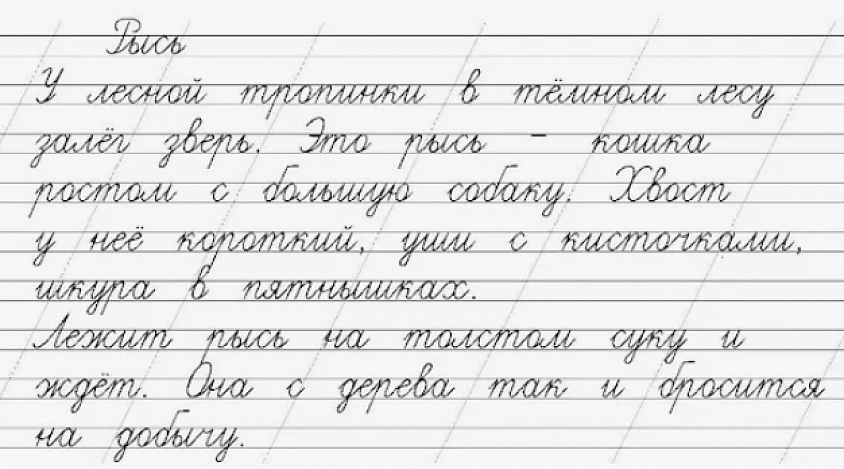 Рысь
У лесной тропинки в тёмном лесу
залёг зверь. Это рысь – кошка
ростом с большую собаку. Хвост
у неё короткий, уши с кисточками,
шкура в пятнышках.
Лежит рысь на толстом суку и
ждёт. Она с дерева так и бросится
на добычу.